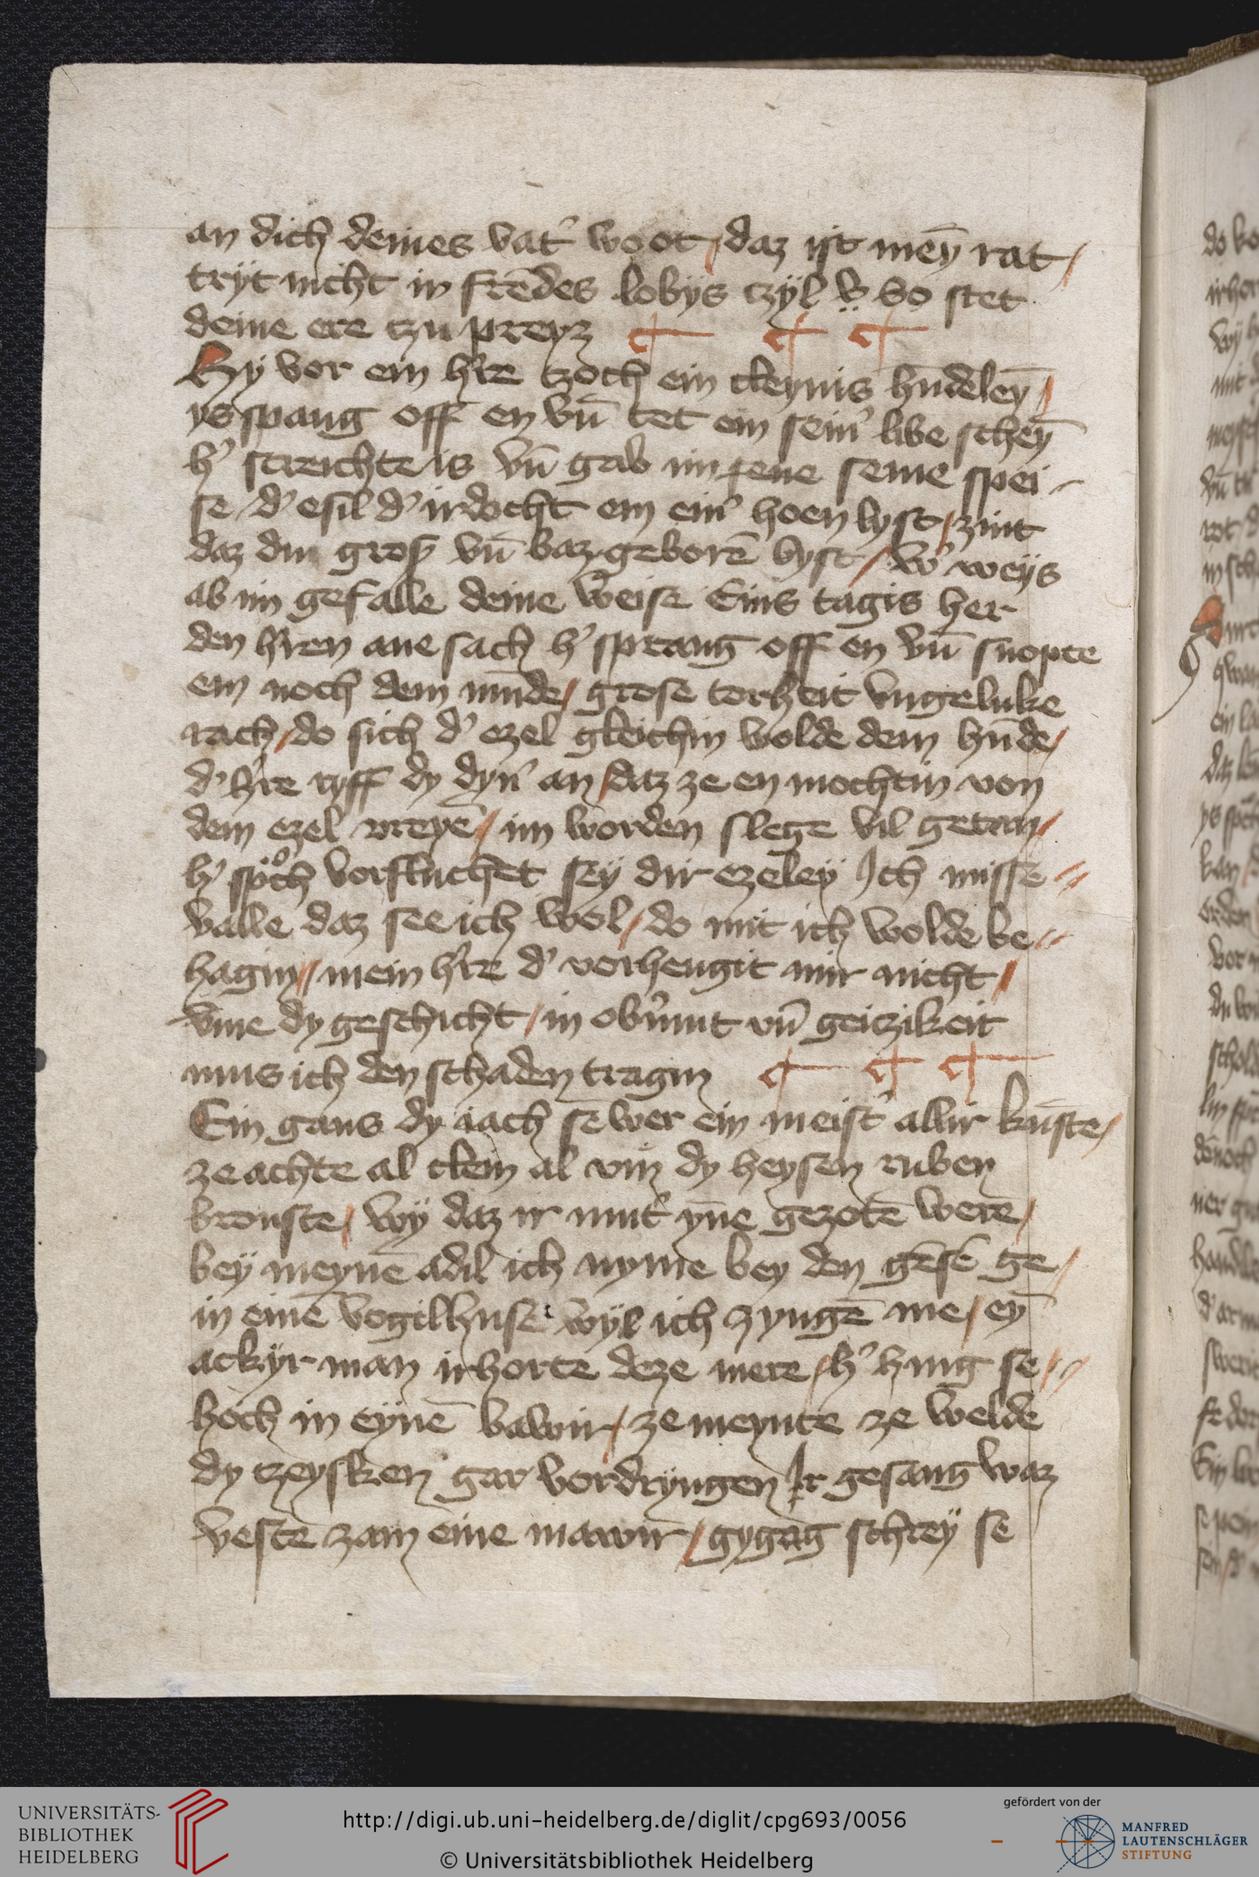 an dich deines vat' woot / daz ist meȳ rat /
tryt nicht in frēdes lobÿs tzÿl So stet
deine ere tzu preyz
Hy vor ein h're tzoch ein cleynis hūdeleȳ /
ys spang off en vn̄ tet em sein' libe scheȳ
h' streichte is vn̄ gab im iene seine spei -
se d' esil d' irdocht em ein' hoen lyst / zint
daz du groß vn̄ baz geborē byst / w' weÿs
ab im gefalle deine weise Eins tagis her
den h'ren ane sach h' sprang off en vn̄ snopte
em noch dem mūde / grose torheit vngeluke
rach / do sich d' ezel gleichin wolde dem hūde /
d' h're ryff dy dyn' an / daz ze en mochtin von
dem ezel vreyē // im worden slege vil getan /
h' sproch vorfluchet sey dir ezeley Ich misse //
valle daz see ich wol / do mit ich wolde be //
hagin // mein h're d' vorhengit mir nicht /
vme dy geschicht / in ob'mut vn̄ geizikeit
mus ich den schaden tragin
Ein gans dy iach se wer ein meist' allir kūste /
ze achte al clein al vm dy heysen ruben
brouste / wÿ daz ir mut' yn̄e gezotē werē /
bey meynē adil ich nyme bey den gēsē ge /
in einē vogilhuse wÿl ich zyngē me / eȳ
ackÿr man irhorte deze mere / h' hing se //
hoch in eÿnē bawir / ze meynte ze welde
dy tzeysken gar vordryngen Ir gesang waz
veste zam eine mawir / gygag schrey se
UNIVERSITÄTS-
BIBLIOTHEK
HEIDELBERG
http://digi.ub.uni-heidelberg.de/diglit/cpg693/0056
© Universitätsbibliothek Heidelberg
gefördert von der
MANFRED
LAUTENSCHLÄGER
STIFTUNG